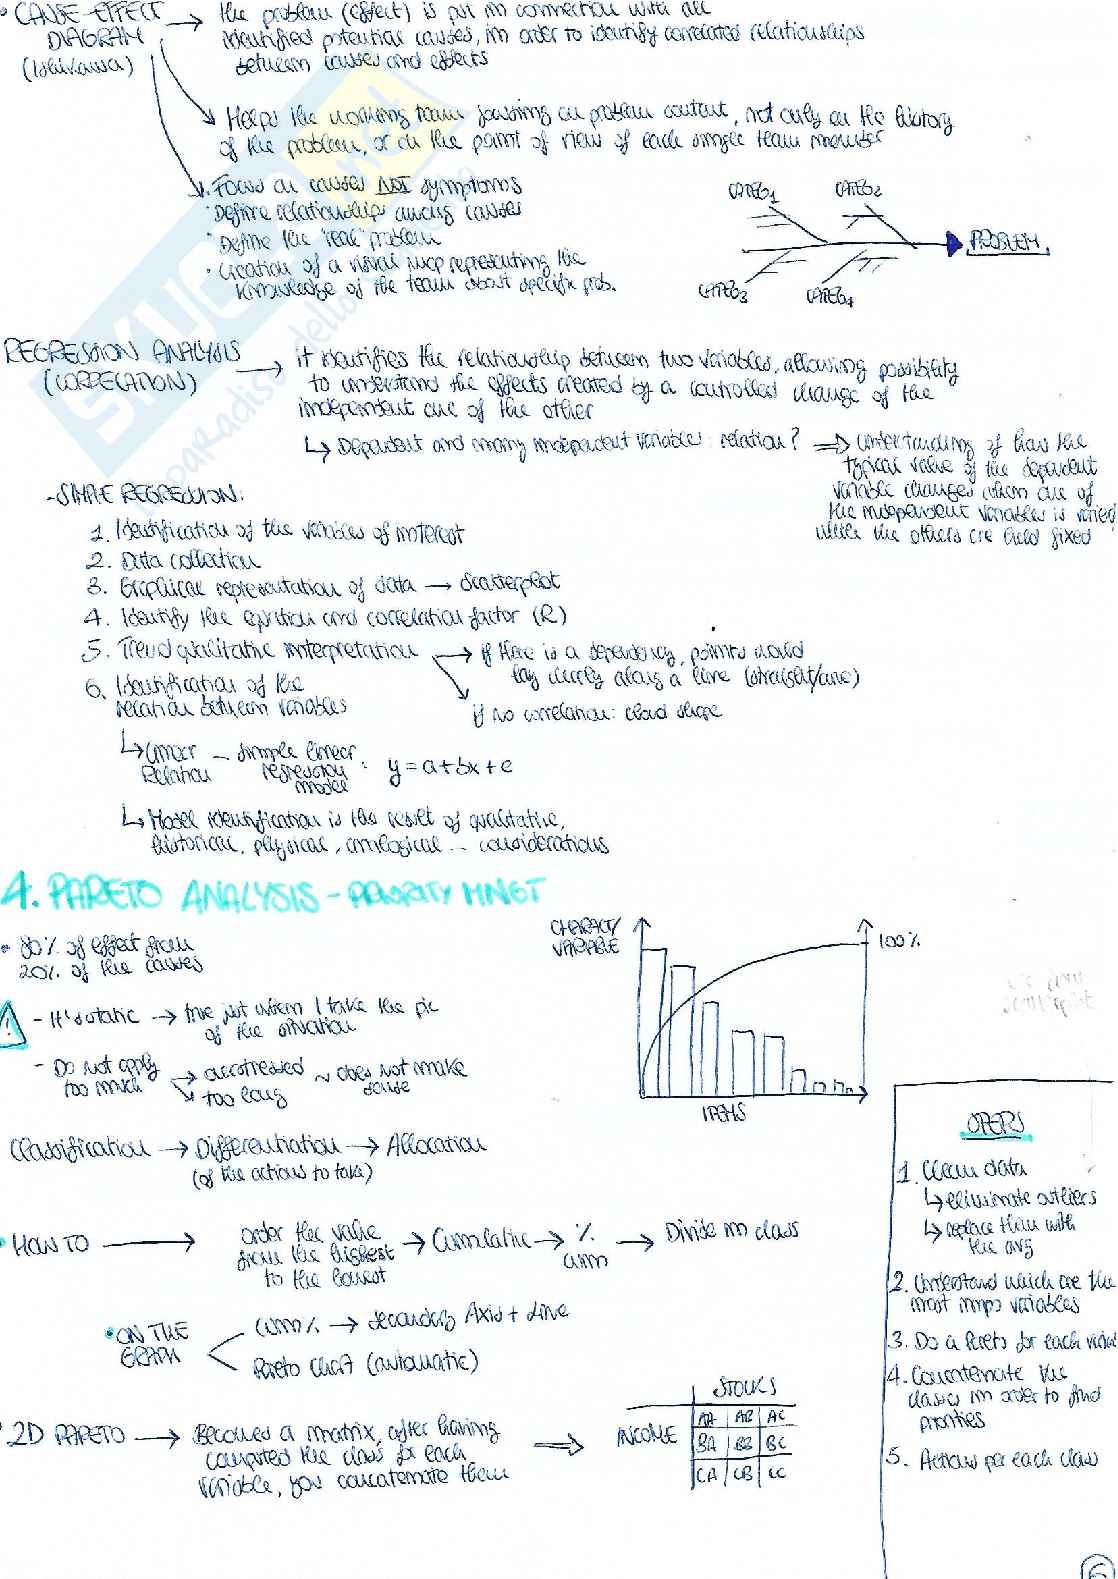 • CAUSE-EFFECT → the problem (effect) is put in connection with all
DIAGRAM identified potential causes, in order to identify correlated relationships
(Ishikawa) between causes and effects
Helps the working team focusing on problem content, not only on the history
of the problem, or on the point of view of each single team member
• Focus on causes NOT symptoms
• Define relationship among causes
• Define the "real" problem
• Creation of a visual map representing the
knowledge of the team about specific prob.
CATEG1 CATEG2
PROBLEM
CATEG3 CATEG4
REGRESSION ANALYSIS → it identifies the relationship between two variables, allowing possibility
(CORRELATION) to understand the effects created by a controlled change of the
independent one of the other
↳ Dependent and many independent variables: relation? ⇒ understanding of how the
typical value of the dependent
variable changes when one of
the independent variables is varied
while the others are held fixed
- SIMPLE REGRESSION:
1. Identification of the variables of interest
2. Data collection
3. Graphical representation of data → Scatterplot
4. Identify the equation and correlation factor (R)
5. Trend qualitative interpretation → if there is a dependency, points would
lay clearly along a line (straight/curve)
if no correlation: cloud shape
6. Identification of the
relation between variables
↳ Linear – simple linear
Relation regression : y = a + bx + e
model
↳ Model identification is the result of qualitative,
historical, physical, analogical ... considerations
4. PARETO ANALYSIS - PRIORITY MNGT
• 80% of effect from
20% of the causes
CHARACT/
VARIABLE
100%
ITEMS
! - It's static → true just when I take the pic
of the situation
- Do not apply → accostressed ~ does not make
too much sense
too long
Classification → Differentiation → Allocation
(of the actions to take)
• HOW TO → order the value → Cumulative → % → Divide in class
from the highest cum
to the lowest
• ON THE cum% → secondary Axis + Line
GRAPH Pareto Chart (automatic)
• 2D PARETO → Becomes a matrix, after having
computed the class for each
variable, you concatenate them
STOCKS
INCOME AA AB AC
BA BB BC
CA CB CC
STEPS
1. Clean data
↳ eliminate outliers
↳ replace them with
the avg
2. Understand which are the
most imp variables
3. Do a Pareto for each
4. Concatenate the
classes in order to find
priorities
5. Actions per each class
6
SKUOLA.net
il paradiso dello